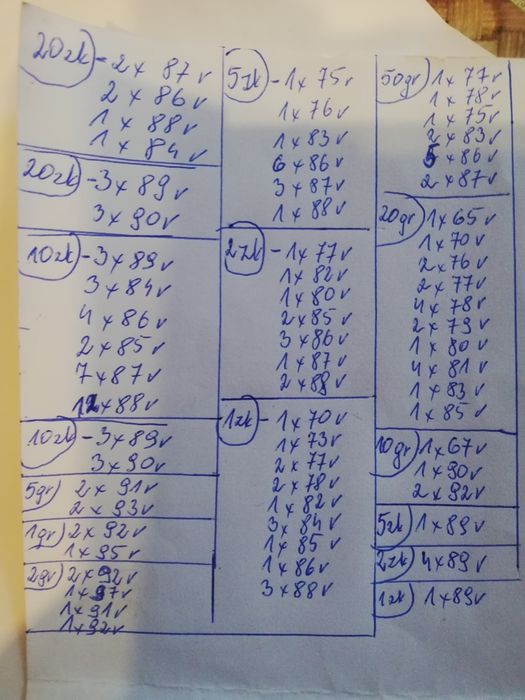 20zk - 2 x 87v
2 x 86v
1 x 88v
1 x 84v
20zk - 3 x 89v
3 x 90v
10zk - 3 x 89v
3 x 84v
4 x 86v
2 x 85v
7 x 87v
12 x 88v
10zk - 3 x 89v
3 x 90v
5gr) 2 x 91v
2 x 93v
1gr) 2 x 92v
1 x 95v
2gr) 2 x 92v
1 x 97v
1 x 91v
1 x 92v
5zk - 1 x 75v
1 x 76v
1 x 83v
6 x 86v
3 x 87v
1 x 88v
2zk - 1 x 77v
1 x 82v
1 x 80v
2 x 85v
3 x 86v
1 x 87v
2 x 88v
1zk - 1 x 70v
1 x 73v
2 x 77v
2 x 78v
1 x 82v
3 x 84v
1 x 85v
1 x 86v
3 x 88v
50gr) 1 x 77v
1 x 78v
1 x 75v
2 x 83v
5 x 86v
2 x 87v
20gr) 1 x 65v
1 x 70v
2 x 76v
2 x 77v
4 x 78v
2 x 79v
1 x 80v
4 x 81v
1 x 83v
1 x 85v
10gr) 1 x 67v
1 x 90v
2 x 92v
5zk) 1 x 89v
2zk) 4 x 89v
1zk) 1 x 89v